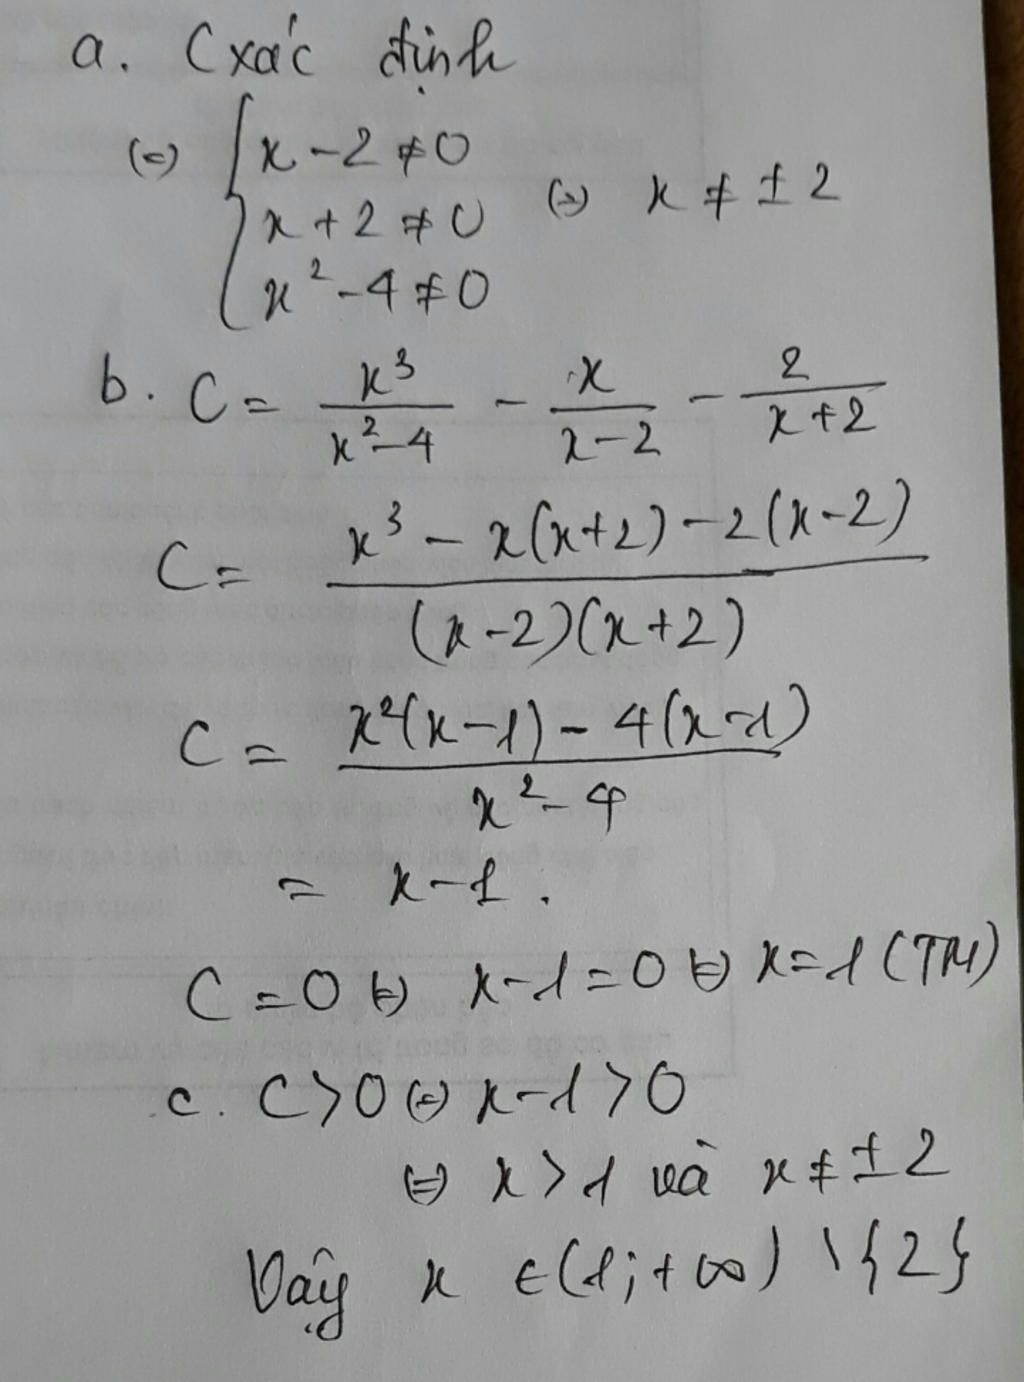 a. C xác định
(=) { x - 2 ≠ 0
x + 2 ≠ 0 (=) x ≠ ± 2
x² - 4 ≠ 0
b. C = x³/(x² - 4) - x/(x - 2) - 2/(x + 2)
C = (x³ - x(x + 2) - 2(x - 2))/((x - 2)(x + 2))
C = (x²(x - 1) - 4(x - 1))/(x² - 4)
= x - 1 .
C = 0 (=) x - 1 = 0 (=) x = 1 (TM)
c. C > 0 (=) x - 1 > 0
(=) x > 1 và x ≠ ± 2
Vậy x ∈ (1; + ∞) \ {2}